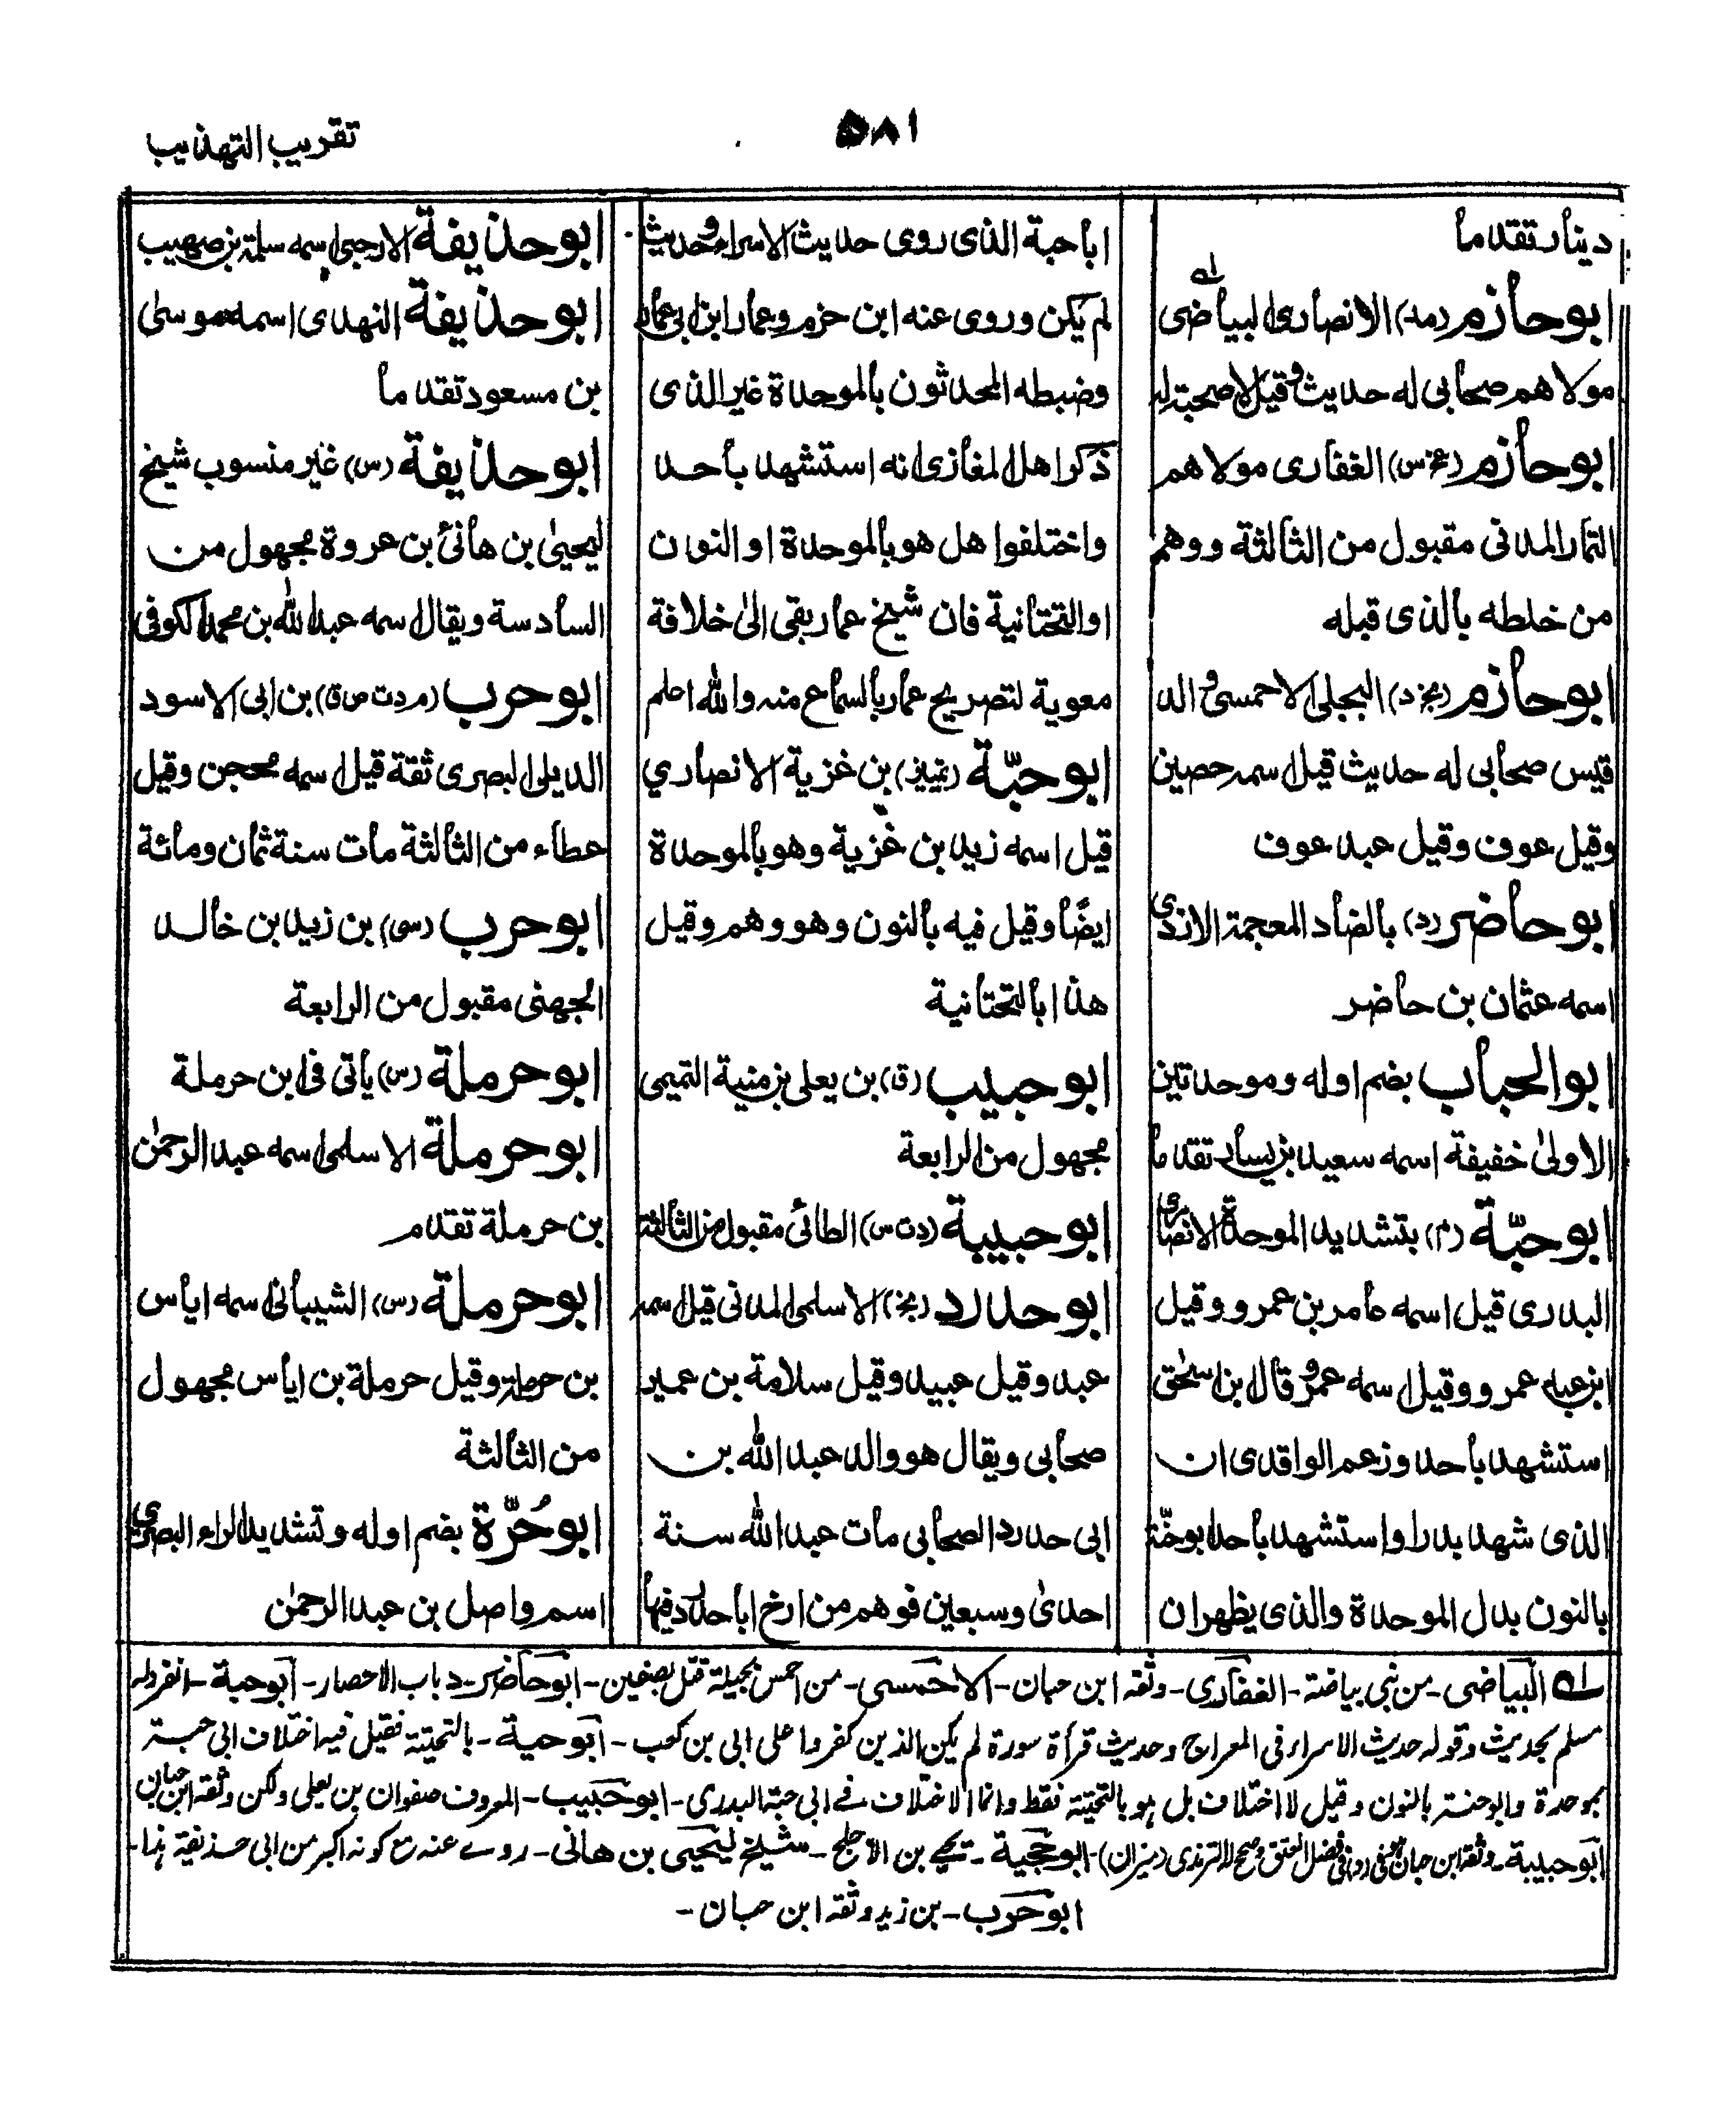 تقريب التهذيب
٥٨١
دينار تقدما
ابو حازم (مد) الانصارى البياضى
مولاهم صحابى له حديث وقيل لا صحبة له
ابو حازم (عخ س) الغفارى مولاهم
التمار المدنى مقبول من الثالثة ووهم
من خلطه بالذى قبله
ابو حازم (بخ د) البجلى الاحمسى والد
قيس صحابى له حديث قيل اسمه حصين
وقيل عوف وقيل عبد عوف
ابو حاضر (د) بالضاد المعجمة الازدى
اسمه عثمان بن حاضر
ابو الحباب بضم اوله وموحدتين
الاولى خفيفة اسمه سعيد بن يسار تقدما
ابو حبّة (م) بتشديد الموحدة الانصارى
البدرى قيل اسمه عامر بن عمرو وقيل
ابن عبد عمرو وقيل اسمه عمرو قال بن اسحٰق
استشهد باحد وزعم الواقدى ان
الذى شهد بدرا واستشهد باحد ابو حنّة
بالنون بدل الموحدة والذى يظهر ان
ابا حبة الذى روى حديث الاسراء وحديث
لم يكن وروى عنه ابن حزم وعمار ابن ابى عمار
وضبطه المحدثون بالموحدة غير الذى
ذكر اهل المغازى انه استشهد باحد
واختلفوا هل هو بالموحدة او النون
او التحتانية فان شيخ عمار بقى الىٰ خلافة
معوية لتصريح عمار بالسماع منه والله اعلم
ابو حبّة (تمييز) بن غزية الانصاري
قيل اسمه زيد بن غزية وهو بالموحدة
ايضًا وقيل فيه بالنون وهو وهم وقيل
هذا بالتحتانية
ابو حبيب (ق) بن يعلى بن منية التميمى
مجهول من الرابعة
ابو حبيبة (د ت س) الطائى مقبول من الثالثة
ابو حدرد (بخ) الاسلمى المدنى قيل اسمه
عبد وقيل عبيد وقيل سلامة بن عمير
صحابى ويقال هو والد عبد الله بن
ابى حدرد الصحابى مات عبد الله سنة
احدىٰ وسبعين فوهم من ارخ ابا حدرد فيها
ابو حذيفة الارحبى اسمه سلمة بن صهيب
ابو حذيفة النهدى اسمه موسىٰ
بن مسعود تقدما
ابو حذيفة (س) غير منسوب شيخ
ليحيىٰ بن هانئ بن عروة مجهول من
السادسة ويقال اسمه عبد الله بن محمد الكوفى
ابو حرب (م د ت ص ق) بن ابى الاسود
الديلى البصرى ثقة قيل اسمه محجن وقيل
عطاء من الثالثة مات سنة ثمان ومائة
ابو حرب (سى) بن زيد بن خالد
الجهنى مقبول من الرابعة
ابو حرملة (س) يأتى فى ابن حرملة
ابو حرملة الاسلمى اسمه عبد الرحمٰن
بن حرملة تقدم
ابو حرملة (س) الشيبانى اسمه اياس
بن حرملة وقيل حرملة بن اياس مجهول
من الثالثة
ابو حُرّة بضم اوله وتشديد الراء البصرى
اسم واصل بن عبد الرحمٰن
له البياضى - من بنى بياضة - الغفارى - وثقه ابن حبان - الاحمسى - من احمس بجيلة قتل بصفين - ابو حاضر - د باب الاحصار - ابو حبة - انفرد له
مسلم بحديث وقوله حديث الاسراء فى المعراج وحديث قرأة سورة لم يكن الذين كفروا على ابى بن كعب - ابو حية - بالتحتية فقيل فيه اختلاف ابى حبة
بموحدة وابو حنة بالنون وقيل لا اختلاف بل هو بالتحتية فقط وانما الاختلاف فے ابى حبة البدرى - ابو حبيب - المعروف صفوان بن يعلى ولكن وثقه ابن حبان
ابو حبيبة - وثقه ابن حبان فى فضل العتق وصحح له الترمذى (ميزان) - ابو حجية - يحيے بن الاجلح - شيخ ليحيى بن هانى - روے عنه مع كونه اكبر من ابى حذيفة هذا -
ابو حرب - بن زيد وثقه ابن حبان -